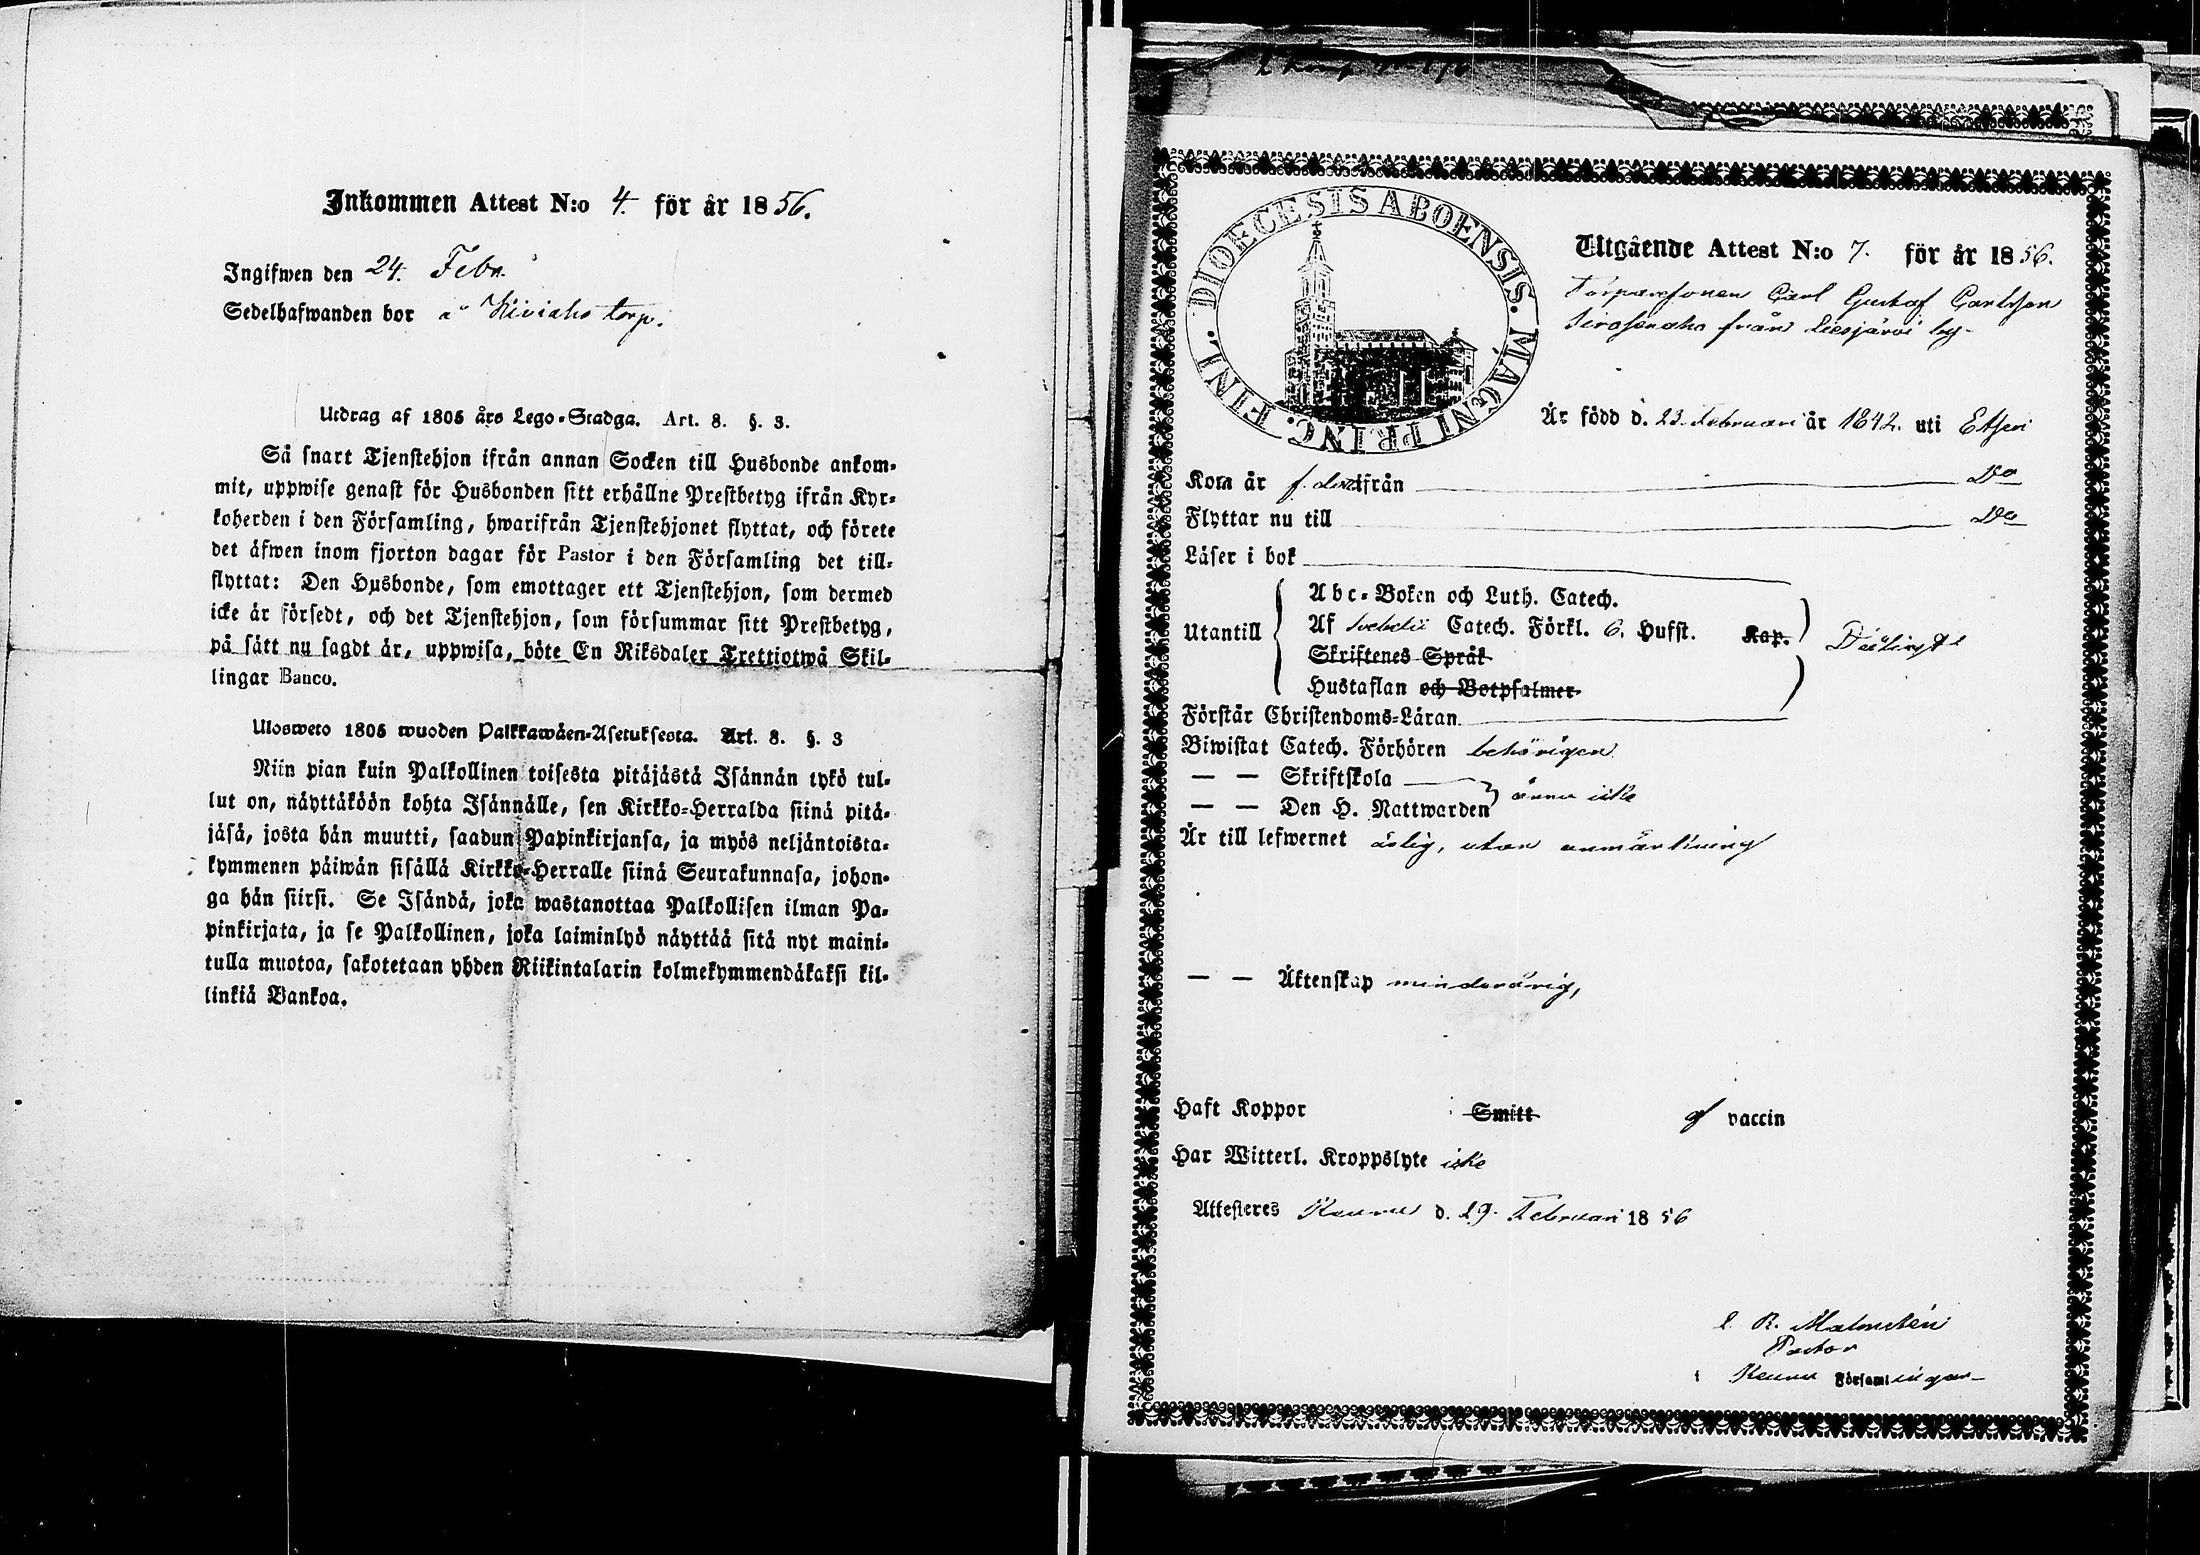 Inkommen Attest N:o 4. för år 1856.
Ingifwen den 24. Febr.
Sedelhafwanden bor å Kiviaho torp.
Utdrag af 1805 års Lego-Stadga. Art. 8. §. 3.
Så snart Tjenstehjon ifrån annan Socken till Husbonde ankom-
mit, uppwise genast för Husbonden sitt erhållne Prestbetyg ifrån Kyr-
koherden i den Församling, hwarifrån Tjenstehjonet flyttat, och förete
det äfwen inom fjorton dagar för Pastor i den Församling det till-
flyttat: Den Husbonde, som emottager ett Tjenstehjon, som dermed
icke är försedt, och det Tjenstehjon, som försummar sitt Prestbetyg,
på sätt nu sagdt är, uppwisa, böte En Riksdaler Trettiotwå Skil-
lingar Banco.
Ulosweto 1805 wuoden Palkkawäen-Asetuksesta. Art. 8. §. 3
Niin pian kuin Palkollinen toisesta pitäjästä Isännän tykö tul-
lut on, näyttäköön kohta Isännälle, sen Kirkko-Herralda siinä pitä-
jäsä, josta hän muutti, saadun Papinkirjansa, ja myös neljäntoista-
kymmenen päiwän sisällä Kirkko-Herralle siinä Seurakunnasa, johon-
ga hän siirsi. Se Isändä, joka wastanottaa Palkollisen ilman Pa-
pinkirjata, ja se Palkollinen, joka laiminlyö näyttää sitä nyt maini-
tulla muotoa, sakotetaan yhden Riikintalarin kolmekymmendäkaksi kil-
linkiä Bankoa.
DIOECESIS ABOENSIS. MAGNI PRINC. FINL.
Utgående Attest N:o 7. för år 1856.
Torparesonen Carl Gustaf Carlsson
från Liesjärvi by
Är född d. 23. Februari år 1842. uti Etseri
Kom år f. ifrån Do
Flyttar nu till Do
Läser i bok
Utantill
Abc-Boken och Luth. Catech.
Af Svebelii Catech. Förkl. 6. Hufst. Kap.
Skriftenes Språk
Hustaflan och Botpsalmer
Förstår Christendoms-Läran
Biwistat Catech. Förhören behörigen
— — Skriftskola
— — Den H. Nattwarden ännu icke
Är till lefwernet ärlig, utan anmärkning
— — Äktenskap minderårig,
Haft Koppor Smitt af vaccin
Har Witterl. Kroppslyte icke
Attesteres Keuru d. 19. Februari 1856
C. R. Malmstén
Pastor
i Keuru Församlingar